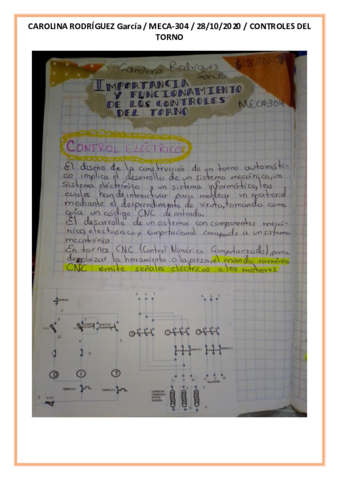 CAROLINA RODRÍGUEZ García / MECA-304 / 28/10/2020 / CONTROLES DEL
TORNO
Carolina Rodriguez
García
IMPORTANCIA
Y FUNCIONAMIENTO
DE LOS CONTROLES
DEL TORNO
MECA304
CONTROL ELÉCTRICO
El diseño de la construcción de un torno automáti-
co implica el desarrollo de un sistema mecánico, un
sistema electrónico y un sistema informático, los
cuales han de interactuar para moldear un material
mediante el desprendimiento de viruta, tomando como
guía un código CNC de entrada.
El desarrollo de un sistema con componentes mecá-
nicos, electrónicos y computacional corresponde a un sistema
mecatrónico.
En tornos CNC (Control Numérico Computarizado), para
desplazar la herramienta o la pieza, el mando numérico
CNC emite señales eléctricas a los motores